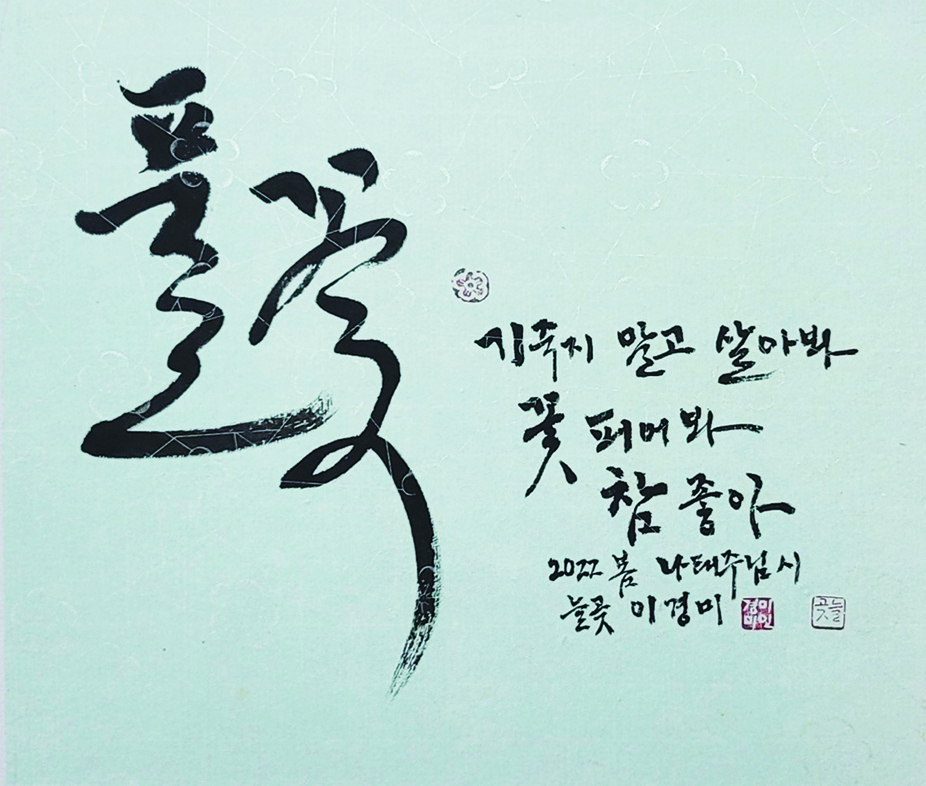 풀꽃
기죽지 말고 살아봐
꽃 피워봐
참 좋아
2022 봄 나태주님 시
이경미